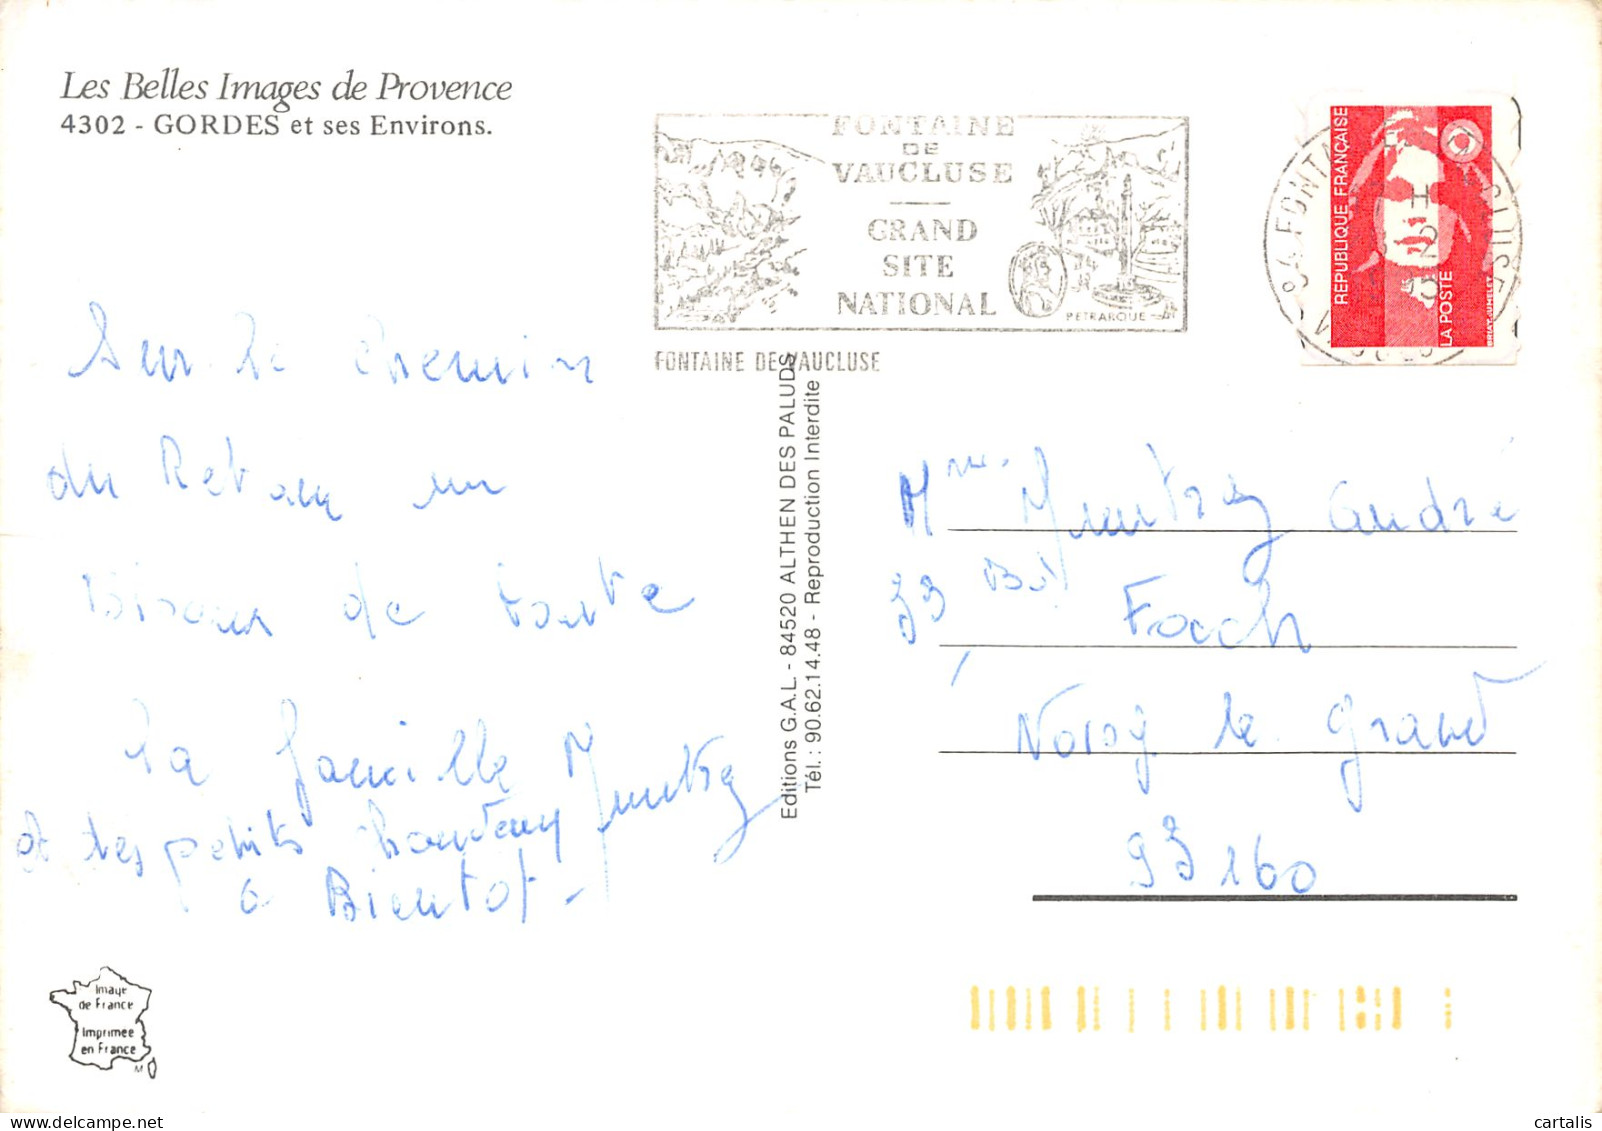 Les Belles Images de Provence
4302 - GORDES et ses Environs.
FONTAINE
DE
VAUCLUSE
GRAND
SITE
NATIONAL
PETRARQUE
FONTAINE DE VAUCLUSE
84 FONTA
REPUBLIQUE FRANÇAISE
LA POSTE
Sur le chemin
du Retour un
Bisous de toute
la famille
et les petits
a Bientot -
Editions G.A.L. - 84520 ALTHEN DES PALUDS
Tél. : 90.62.14.48 - Reproduction Interdite
Mme Andre
33 Bd Foch
Noisy le Grand
93160
Image
de France
Imprimée
en France
cartalis
delcampe.net